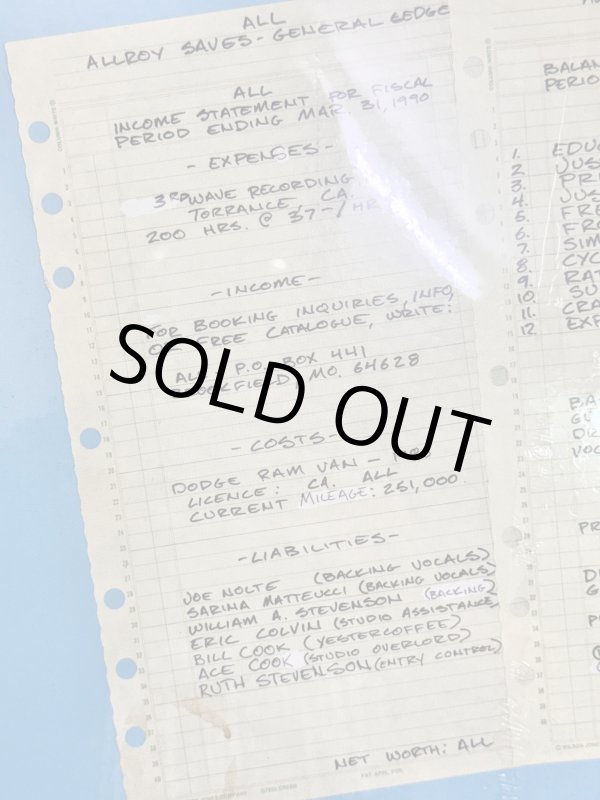 ALL
ALLROY SAVES - GENERAL LEDGE
ALL
INCOME STATEMENT FOR FISCAL
PERIOD ENDING MAR. 31, 1990
- EXPENSES -
3RD WAVE RECORDING
TORRANCE, CA.
200 HRS. @ 37-/HR
- INCOME -
FOR BOOKING INQUIRIES, INFO,
FREE CATALOGUE, WRITE:
P.O. BOX 441
BROOKFIELD, MO. 64628
SOLD OUT
- COSTS -
DODGE RAM VAN -
LICENCE: CA. ALL
CURRENT MILEAGE: 251,000
- LIABILITIES -
JOE NOLTE (BACKING VOCALS)
SARINA MATTEUCCI (BACKING VOCALS)
WILLIAM A. STEVENSON (BACKING)
ERIC COLVIN (STUDIO ASSISTANCE)
BILL COOK (YESTERCOFFEE)
ACE COOK (STUDIO OVERLORD)
RUTH STEVENSON (ENTRY CONTROL)
NET WORTH: ALL
BALAN
PERIO
1. EDUC
2 JUS
3. PR
4. JUS
5. FRE
6. FRO
7. SIM
8. CYC
9. RAT
10. SU
11. CRA
12. EXP
BA
GU
DR
VOC
PR